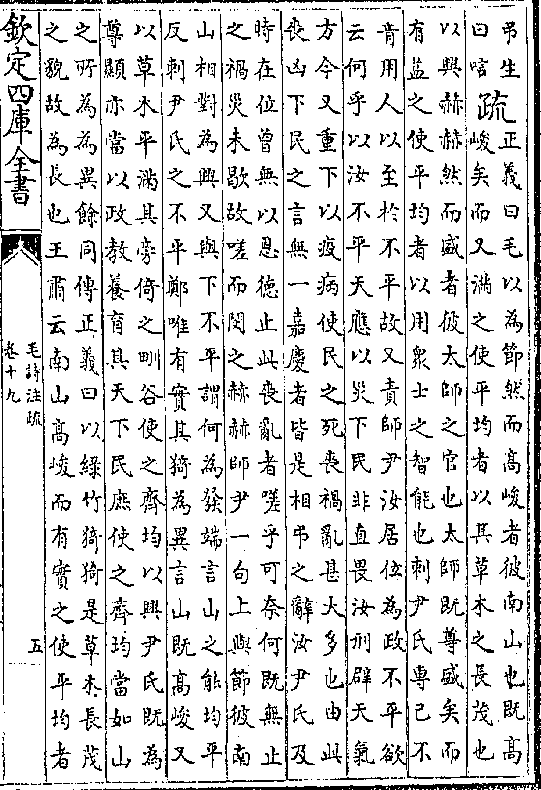 弔生
曰唁疏正義曰毛以為節然而高峻者彼南山也既高
峻矣而又滿之使平均者以其草木之長茂也
以興赫赫然而盛者彼太師之官也太師既尊盛矣而
有益之使平均者以用衆士之智能也刺尹氏專己不
肯用人以至於不平故又責師尹汝居位為政不平欲
云何乎以汝不平天應以災下民非直畏汝刑辟天氣
方今又重下以疫病使民之死喪禍亂甚大多也由此
喪凶下民之言無一嘉慶者皆是相弔之辭汝尹氏及
時在位曾無以恩德止此喪亂者嗟乎可奈何既無止
之禍災未歇故嗟而閔之赫赫師尹一句上與節彼南
山相對為興又與下不平謂何為發端言山之能均平
反刺尹氏之不平鄭唯有實其猗為異言山既高峻又
以草木平滿其旁倚之畎谷使之齊均以興尹氏既為
尊顯亦當以政教養育其天下民庶使之齊均當如山
之所為為異餘同傳正義曰以緑竹猗猗是草木長茂
之貌故為長也王肅云南山高峻而有實之使平均者
欽定四庫全書
毛詩注疏
卷十九
五